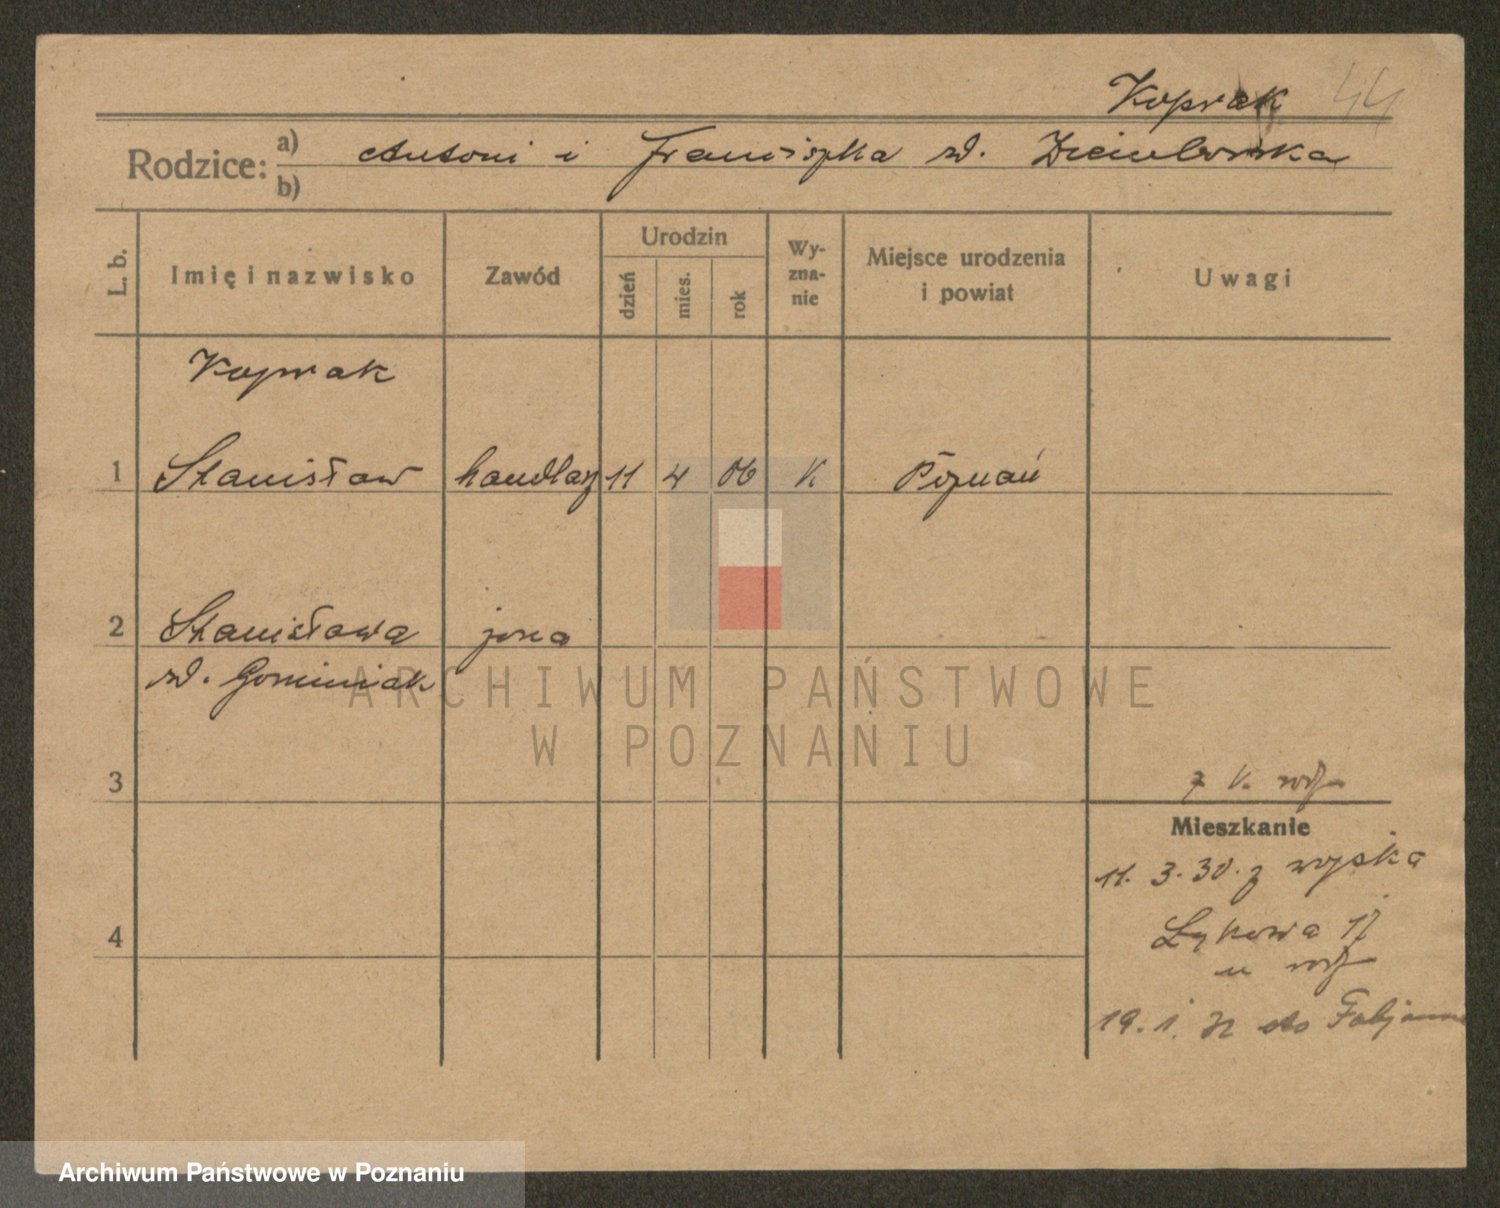 Koprak 44
Rodzice: a) Antoni i Franciszka zd. Dzieciuchowska
b)
L. b. Imię i nazwisko Zawód Urodzin dzień mies. rok Wy-zna-nie Miejsce urodzenia i powiat Uwagi
Koprak
1 Stanisław handlarz 11 4 06 K Poznań
2 Stanisława żona
zd. Gominiak
3
z k. rodz
Mieszkanie
11. 3. 30. z wojska
4
Łąkowa 17
u rodz
19. 1. 32 do Fabjanowa
ARCHIWUM PAŃSTWOWE
W POZNANIU
Archiwum Państwowe w Poznaniu